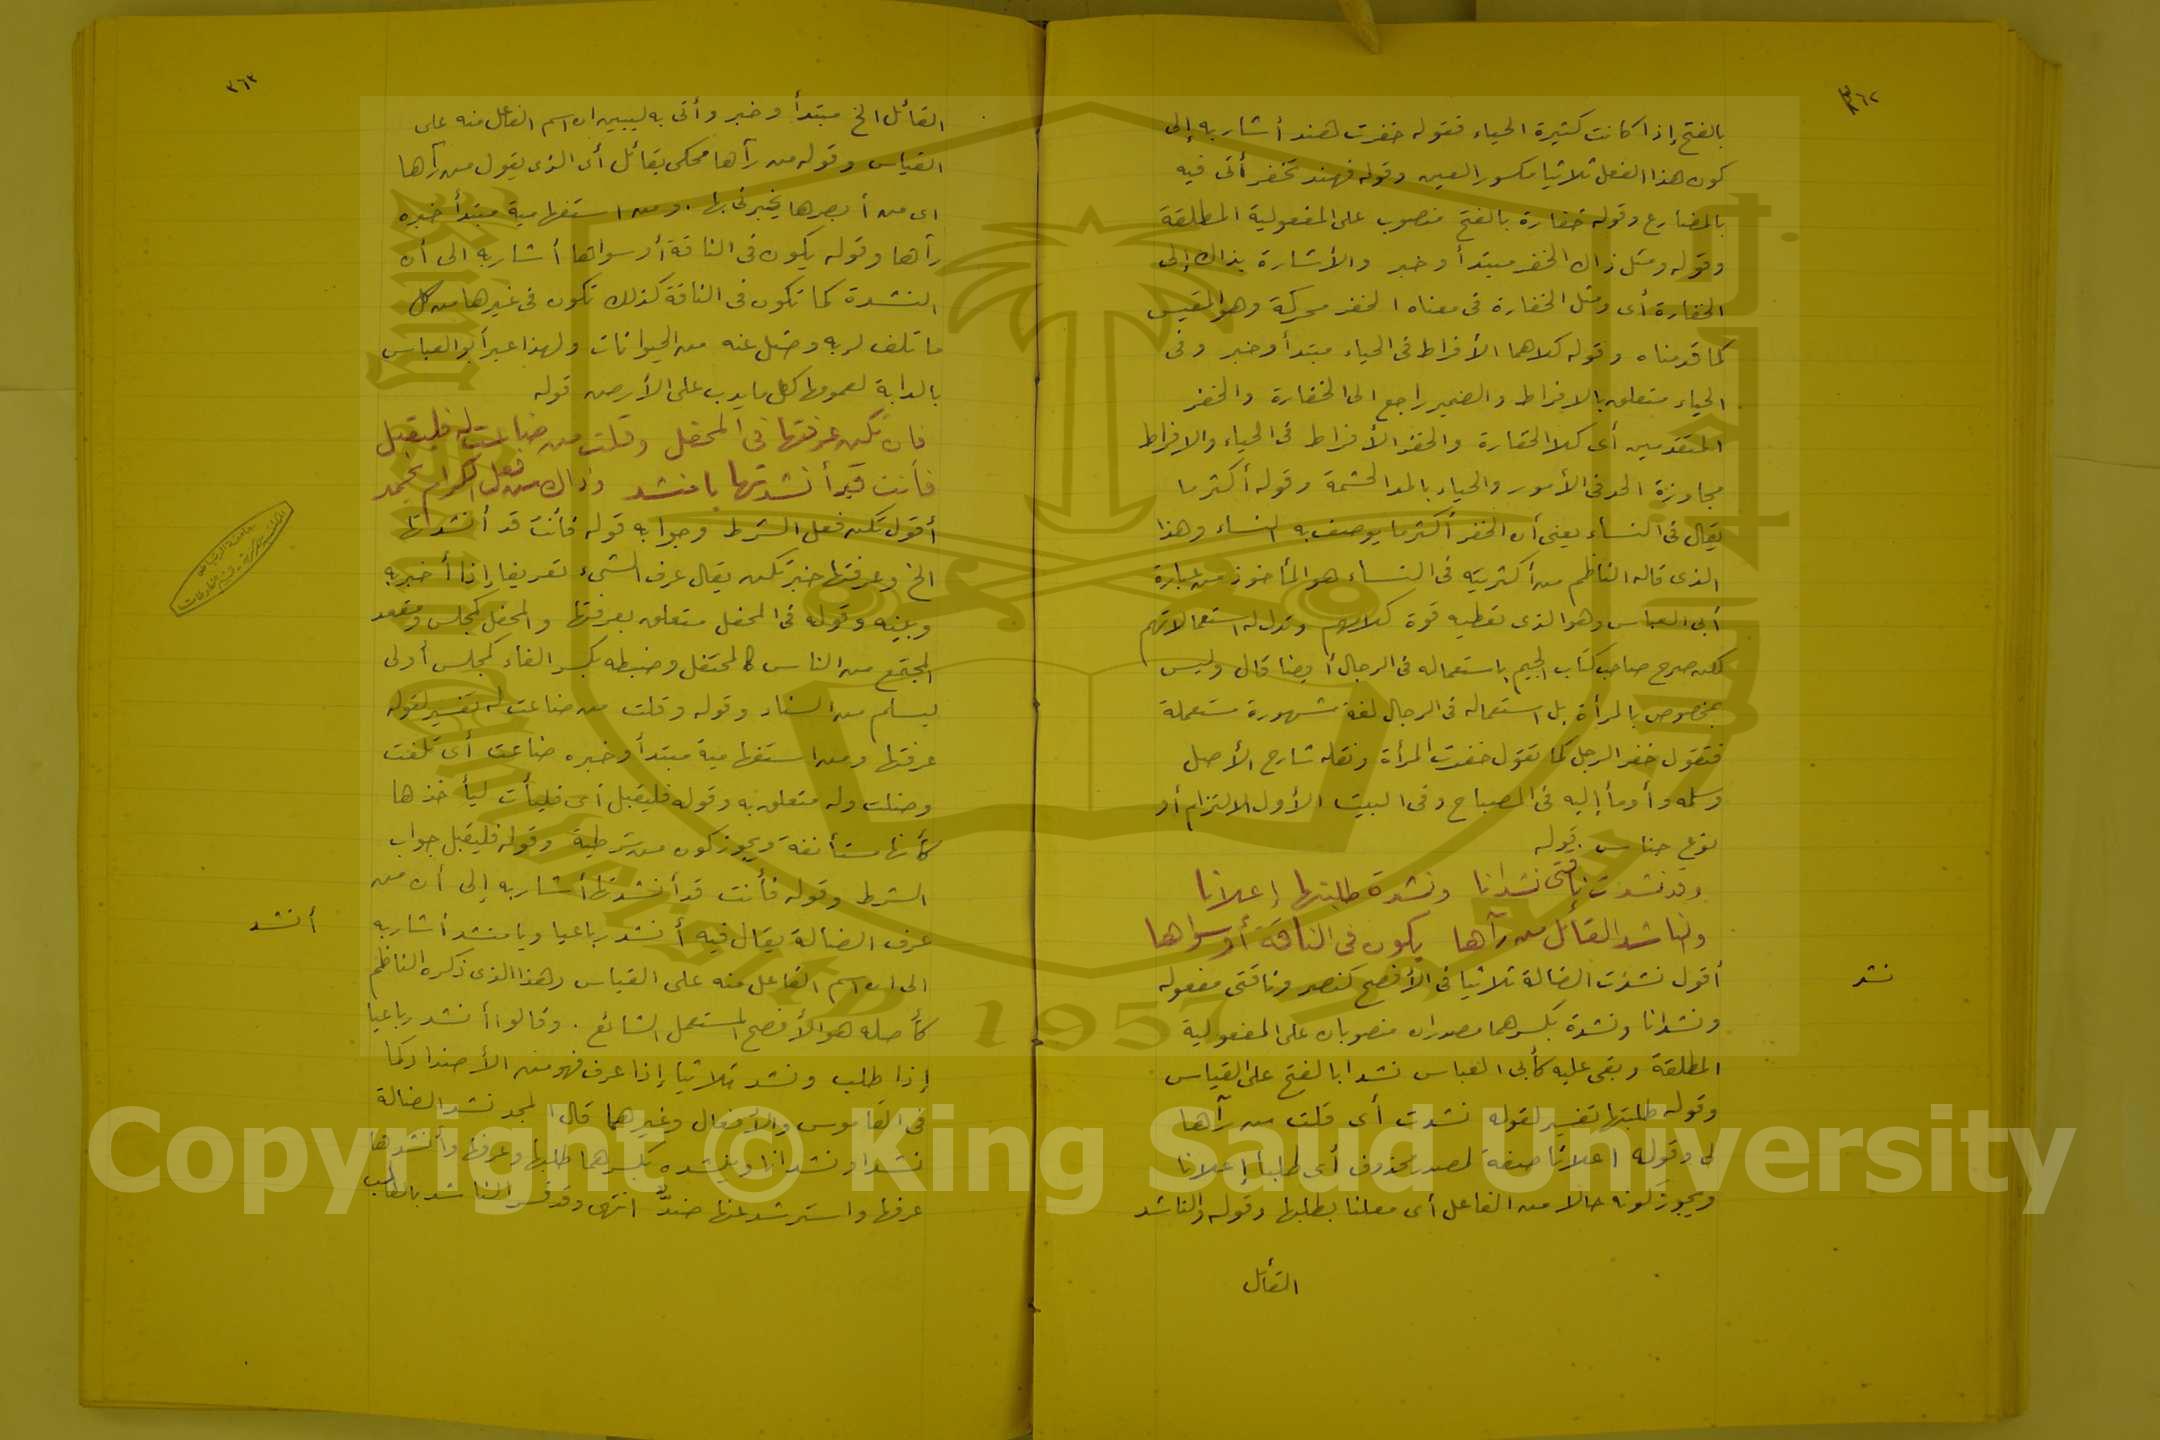 ٣٦٢
بالفتح إذا كانت كثيرة الحياء فقوله خفرت هند أشار به إلى
كون هذا الفعل ثلاثيا مكسور العين وقوله فهند تخفر أتى فيه
بالمضارع وقوله خفارة بالفتح منصوب على المفعولية المطلقة
وقوله ومثل ذاك الخفر مبتدأ وخبر والأشارة بذاك إلى
الخفارة أى ومثل الخفارة فى معناه الخفر محركة وهو المقيس
كما قدمناه وقوله كلاهما الأفراط فى الحياء مبتدأ وخبر وفى
الحياء متعلق بالافراط والضمير راجع الى الخفارة والخفر
المتقدمين أى كلا الخفارة والخفر الأفراط فى الحياء والافراط
مجاوزة الحد فى الأمور والحياء بالمد الحشمة وقوله أكثر ما
يقال فى النساء يعنى أن الخفر أكثر ما يوصف به النساء وهذا
الذى قاله الناظم من أكثريته فى النساء هو المأخوذ من عبارة
أبى العباس وهو الذى تعطيه قوة كلامهم وتدل له استعمالاتهم
لكن صرح صاحب كتاب الجيم باستعماله فى الرجال أيضا قال وليس
بمخصوص بالمرأة بل استعماله فى الرجال لغة مشهورة مستعملة
فتقول خفر الرجل كما تقول خفرت المرأة ونقله شارح الأصل
وسلمه وأومأ إليه فى المصباح وفى البيت الأول الالتزام أو
نوع جناس قوله
وقد نشدت ناقتى نشدانا ونشدة طلبتها إعلانا
والناشد القائل من رآها يكون فى الناقة أو سواها
نشد
أقول نشدت الضالة ثلاثيا فى الأفصح كنصر وناقتى مفعوله
ونشدانا ونشدة بكسرهما مصدران منصوبان على المفعولية
المطلقة وبقى عليه كأبى العباس نشدا بالفتح على القياس
وقوله طلبتها تفسير لقوله نشدت أى قلت من رآها
لى وقوله اعلانا صفة لمصدر محذوف أى طلبا إعلانا
ويجوز كونه حالا من الفاعل أى معلنا بطلبها وقوله والناشد
القائل
٣٦٣
القائل الخ مبتدأ وخبر وأتى به ليبين ان اسم الفاعل منه على
القياس وقوله من رآها محكى بقائل أى الذى يقول من رآها
اى من أبصرها يخبرنى بها . ومن استفهامية مبتدأ خبره
رآها وقوله يكون فى الناقة أو سواها أشار به الى أن
النشدة كما تكون فى الناقة كذلك تكون فى غيرها من كل
ما تلف لربه وضل عنه من الحيوانات ولهذا عبر أبو العباس
بالدابة لعمومها كل ما يدب على الأرض قوله
فان تكن عرفتها فى المحفل وقلت من ضاعت له فليقبل
فأنت قد أنشدتها يا منشد وذاك من فعل الكرام يحمد
أقول تكن فعل الشرط وجوابه قوله فأنت قد أنشدتها
الخ وعرفتها خبر تكن يقال عرف الشىء تعريفا إذا أخبر به
وبينه وقوله فى المحفل متعلق بعرفتها والمحفل كمجلس ومقعد
المجتمع من الناس كالمحتفل وضبطه بكسر الفاء كمجلس أولى
ليسلم من السناد وقوله وقلت من ضاعت له تفسير لقوله
عرفتها ومن استفهامية مبتدأ وخبره ضاعت أى تلفت
وضلت وله متعلق به وقوله فليقبل أى فليأت ليأخذها
كأنها مستأنفة ويجوز كون من شرطية وقوله فليقبل جواب
الشرط وقوله فأنت قد أنشدتها أشار به إلى أن من
أنشد
عرف الضالة يقال فيه أنشد رباعيا ويا منشد أشار به
الى ان اسم الفاعل منه على القياس وهذا الذى ذكره الناظم
كأصله هو الأفصح المستعمل الشائع . وقالوا أنشد رباعيا
إذا طلب ونشد ثلاثيا إذا عرف فهو من الأضداد كما
فى القاموس والأفعال وغيرهما قال المجد نشد الضالة
نشدا ونشدانا ونشده بكسرهما طلبها وعرفها وأنشدها
عرفها واسترشد عنها ضد انتهى وقد فسر الناشد بالطالب
1957
Copyright © King Saud University